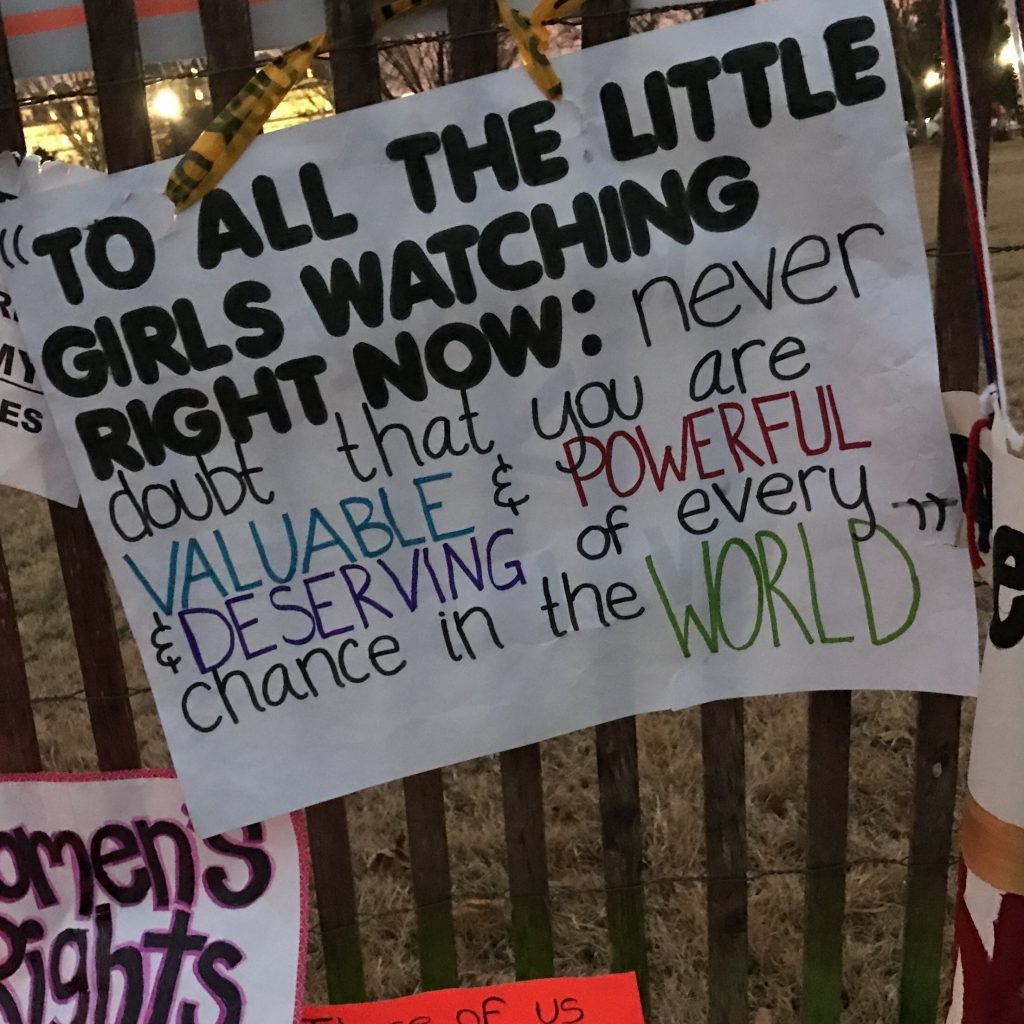 "TO ALL THE LITTLE
GIRLS WATCHING
RIGHT NOW: never
doubt that you are
VALUABLE & POWERFUL
& DESERVING of every "
chance in the WORLD
MY
ES
Rights
of us
e